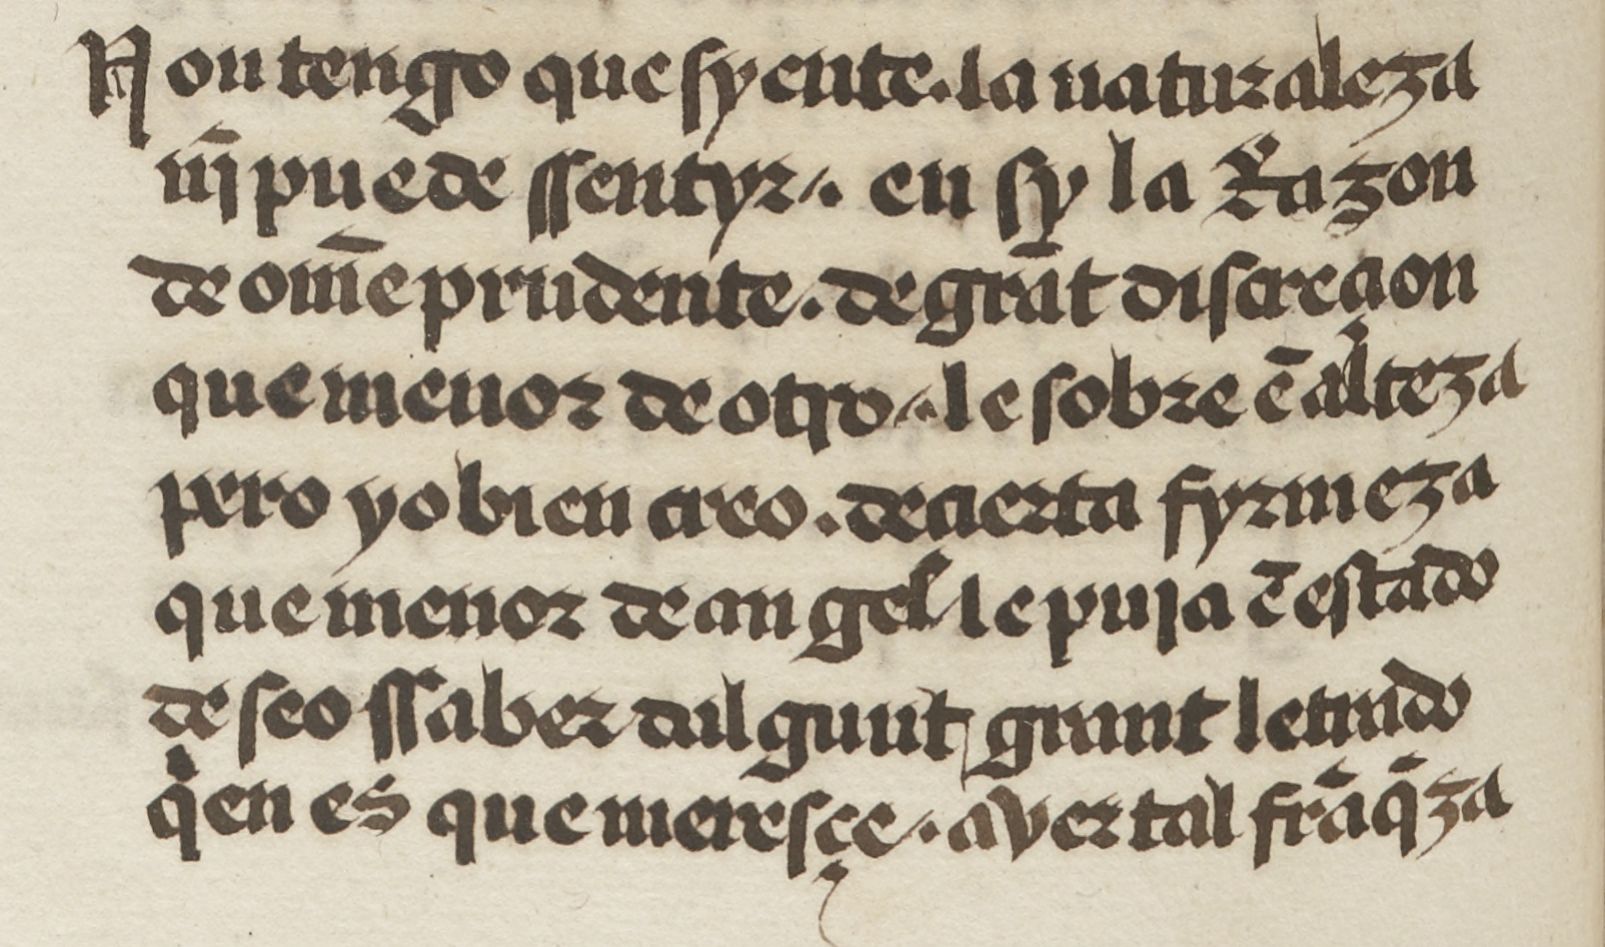 Non tengo que syente . la naturaleza
nj̄ puede ssentyr . en sy la Razon
de om̄e prudente . de grāt discreçion
que menor de otro . le sobre ē alteza
pero yo bien creo . de cierta fyrmeza
que menor de angel le puja ē estado
deseo ssaber dalgunt grant letrado
qien es que meresçe . aver tal frāq̄za